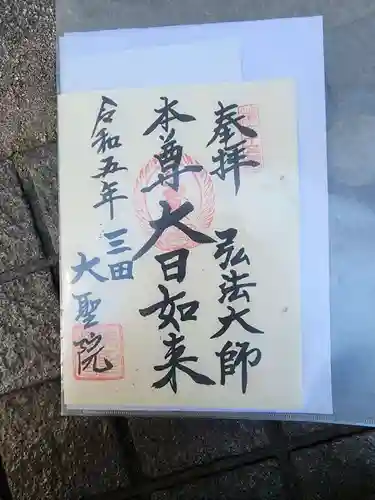 奉拝 弘法大師
本尊大日如来
令和五年
三田
大聖院